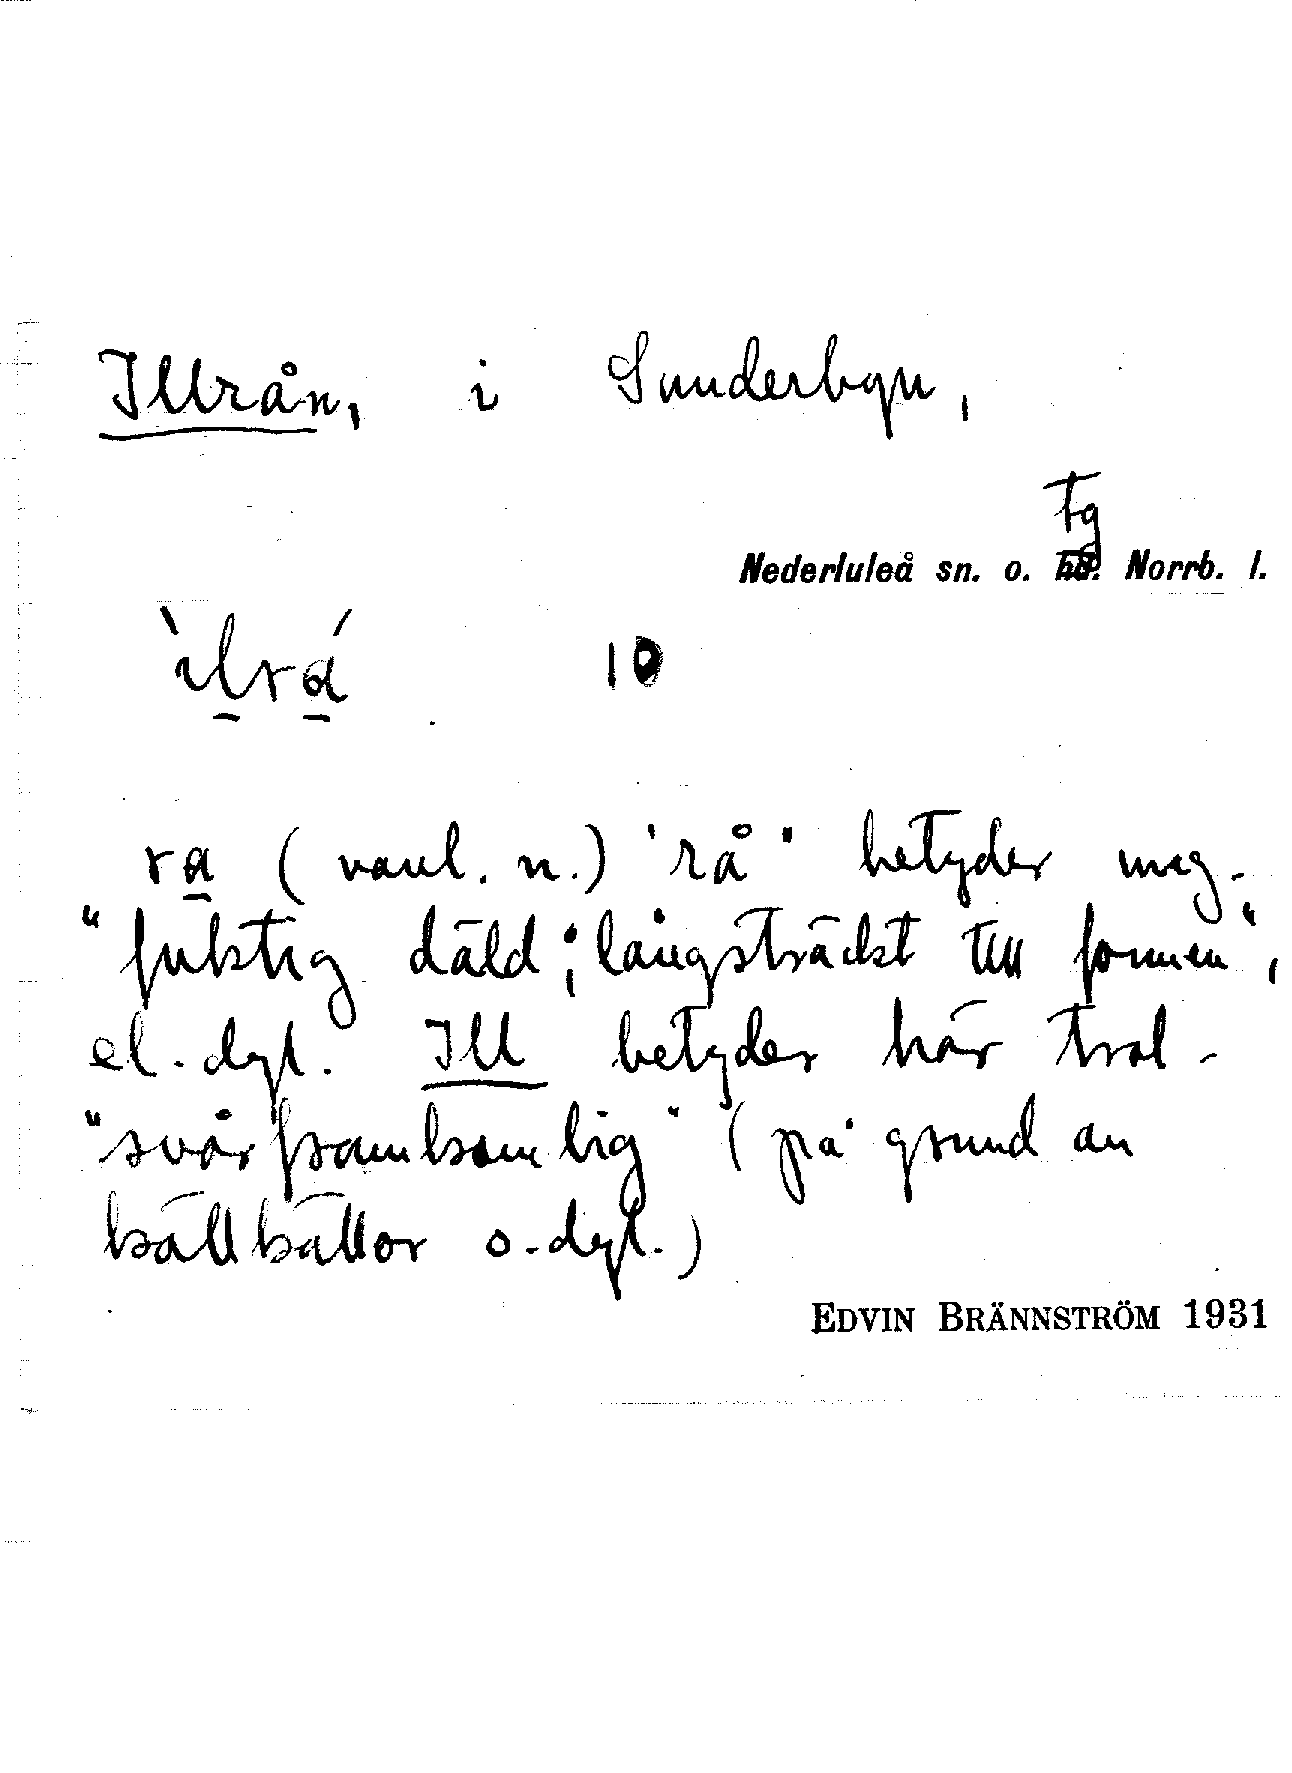 Illrån, i Sunderbyn,
tg
Nederluleå sn. o. hd. Norrb. l.
`ilrá 10
ra (vanl. n.) 'rå' betyder ung.
"fuktig däld; långsträckt till formen",
el. dyl. Ill betyder här trol.
"svårframkomlig" (på grund av
kallkällor o. dyl.)
EDVIN BRÄNNSTRÖM 1931